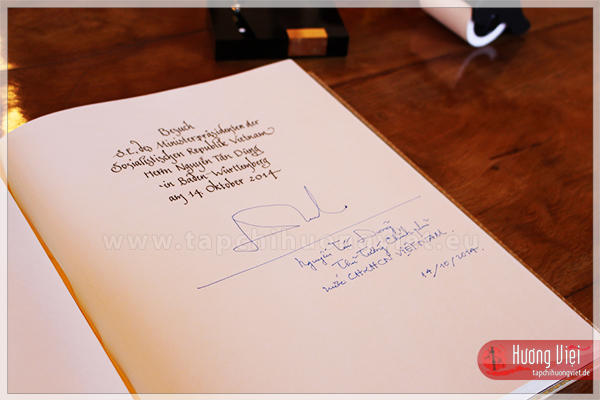 Besuch
S.E. des Ministerpräsidenten der
Sozialistischen Republik Vietnam
Herrn Nguyễn Tấn Dũng
in Baden-Württemberg
am 14. Oktober 2014
www.tapchihuongviet.eu
Nguyễn Tấn Dũng
Thủ Tướng Chính phủ
nước CHXHCN VIỆT NAM.
14/10/2014.
Hương Việt
tapchihuongviet.de